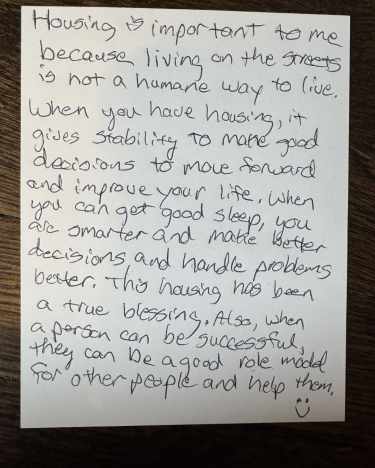 Housing is important to me
because living on the streets
is not a humane way to live.
When you have housing, it
gives stability to make good
decisions to move forward
and improve your life. When
you can get good sleep, you
are smarter and make better
decisions and handle problems
better. This housing has been
a true blessing. Also, when
a person can be successful,
they can be a good role model
for other people and help them.